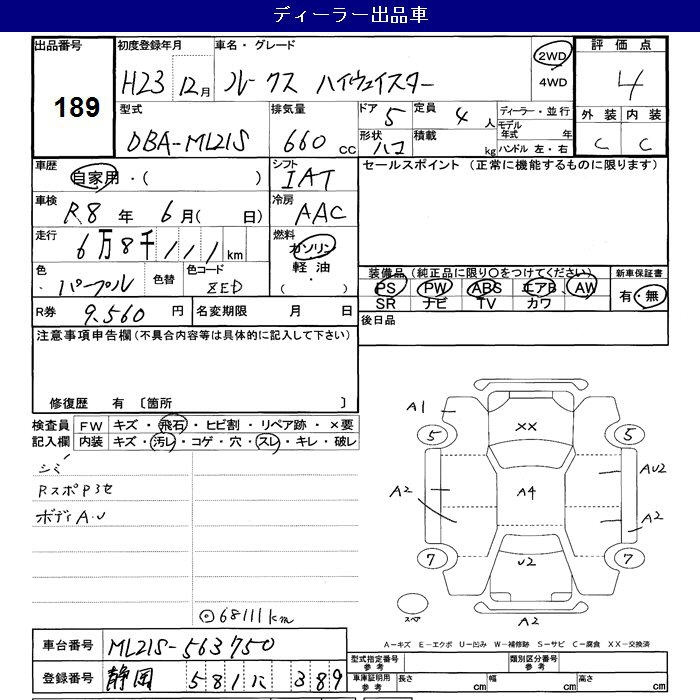 ディーラー出品車
出品番号 初度登録年月 車名・グレード 評価点
189 H23 12月 ルークス ハイウェイスター 2WD 4WD 4
型式 排気量 ドア 5 定員 4人 ディーラー・並行 外装 内装
DBA-ML21S 660cc 形状 ハコ 積載 kg モデル年式 年 C C
ハンドル 左・右
車歴 自家用・( ) シフト IAT セールスポイント (正常に機能するものに限ります)
車検 R.8年 6月( 日) 冷房 AAC
走行 6万8千111km 燃料 ガソリン 軽油 ・( )
色 パープル 色替 色コード ZED 装備品(純正品に限り○をつけてください) 新車保証書
PS PW ABS エアB AW 有・無
SR ナビ TV カワ
R券 9.560円 名変期限 月 日 後日品
注意事項申告欄(不具合内容等は具体的に記入して下さい)
修復歴 有 〔箇所 〕
検査員 FW キズ・飛石・ヒビ割・リペア跡・×要
記入欄 内装 キズ・汚レ・コゲ・穴・スレ・キレ・破レ
シミ
RスポP3セ
ボディA.U
◎68111km
A1
XX
5 5
AU2
A2 A4
A2
7 7
U2
スペア
A2
A-キズ E-エクボ U-凹み W-補修跡 S-サビ C-腐食 XX-交換済
車台番号 ML21S-563750
型式指定番号 参考 類別区分番号 参考
登録番号 静岡 581 389
車庫証明用 参考 長さ cm 幅 cm 高さ cm